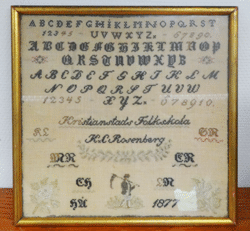 ABCDEFGHIKLMNOPQRST
12345 UVWXYZ. 67890.
ABCDEFGHIKLMNOP
QRSTUVWXYZ
ABCDEFGHIKLM
NOPQRSTUVW
12345 XYZ. 678910.
Kristianstads Folkskola
H.C. Rosenberg
MR ER
CH LM
HA 1877